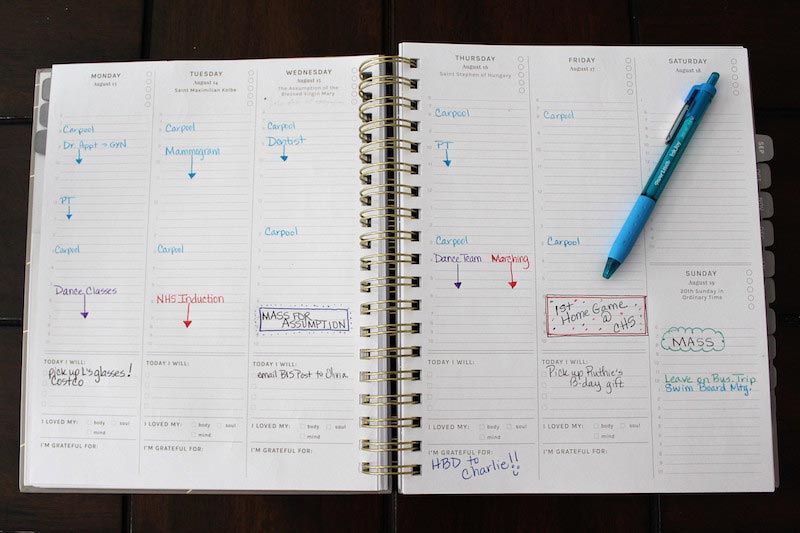 MONDAY
August 13
Carpool
Dr. Appt → GYN
PT
Carpool
Dance Classes
TODAY I WILL:
pick up L's glasses!
Costco
I LOVED MY: body soul
mind
I'M GRATEFUL FOR:
TUESDAY
August 14
Saint Maximilian Kolbe
Carpool
Mammogram
Carpool
NHS Induction
TODAY I WILL:
I LOVED MY: body soul
mind
I'M GRATEFUL FOR:
WEDNESDAY
August 15
The Assumption of the
Blessed Virgin Mary
Carpool
Dentist
Carpool
MASS FOR
ASSUMPTION
TODAY I WILL:
email BIS Post to Olivia
I LOVED MY: body soul
mind
I'M GRATEFUL FOR:
THURSDAY
August 16
Saint Stephen of Hungary
Carpool
PT
Carpool
Dance Team Marching
TODAY I WILL:
I LOVED MY: body soul
mind
I'M GRATEFUL FOR:
HBD to
Charlie!!
FRIDAY
August 17
Carpool
Carpool
1st
Home Game
@ CHS
TODAY I WILL:
Pick up Ruthie's
B-day gift
I LOVED MY: body soul
mind
I'M GRATEFUL FOR:
SATURDAY
August 18
SUNDAY
August 19
20th Sunday in
Ordinary Time
MASS
Leave on Bus Trip
Swim Board Mtg.
SEP